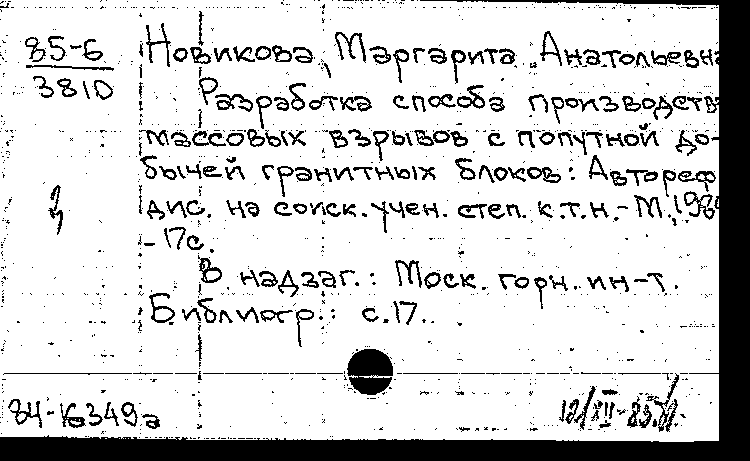 85-6
3810
Новикова, Маргарита Анатольевна
Разработка способа производств
массовых взрывов с попутной до-
бычей гранитных блоков: Автореф
дис. на соиск. учен. степ. к.т.н.-М.,198
-17с.
В надзаг.: Моск. горн. ин-т.
Библиогр.: с.17.
84-16349а
12/XII-85